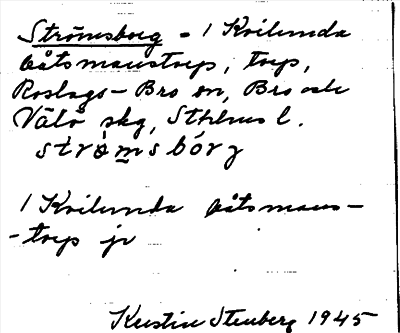 Strömsborg = 1 Kvilunda
båtsmanstorp, torp,
Roslags-Bro sn, Bro och
Vätö skg, Sthlms l.
strømsbórj
1 Kvilunda båtsmans-
-torp jr
Kerstin Stenberg 1945